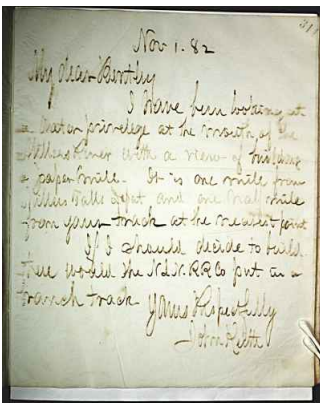 311
Nov 1. 82
My dear Bentley
I have been looking at
a water privelege at the mouth of the
Millers River with a view of building
a paper mill. It is one mile from
Millers Falls Depot and one half mile
from your track at the nearest point
If I should decide to build
would the N.L.N.RR Co put in a
branch track.
Yours Respectfully
John Keith